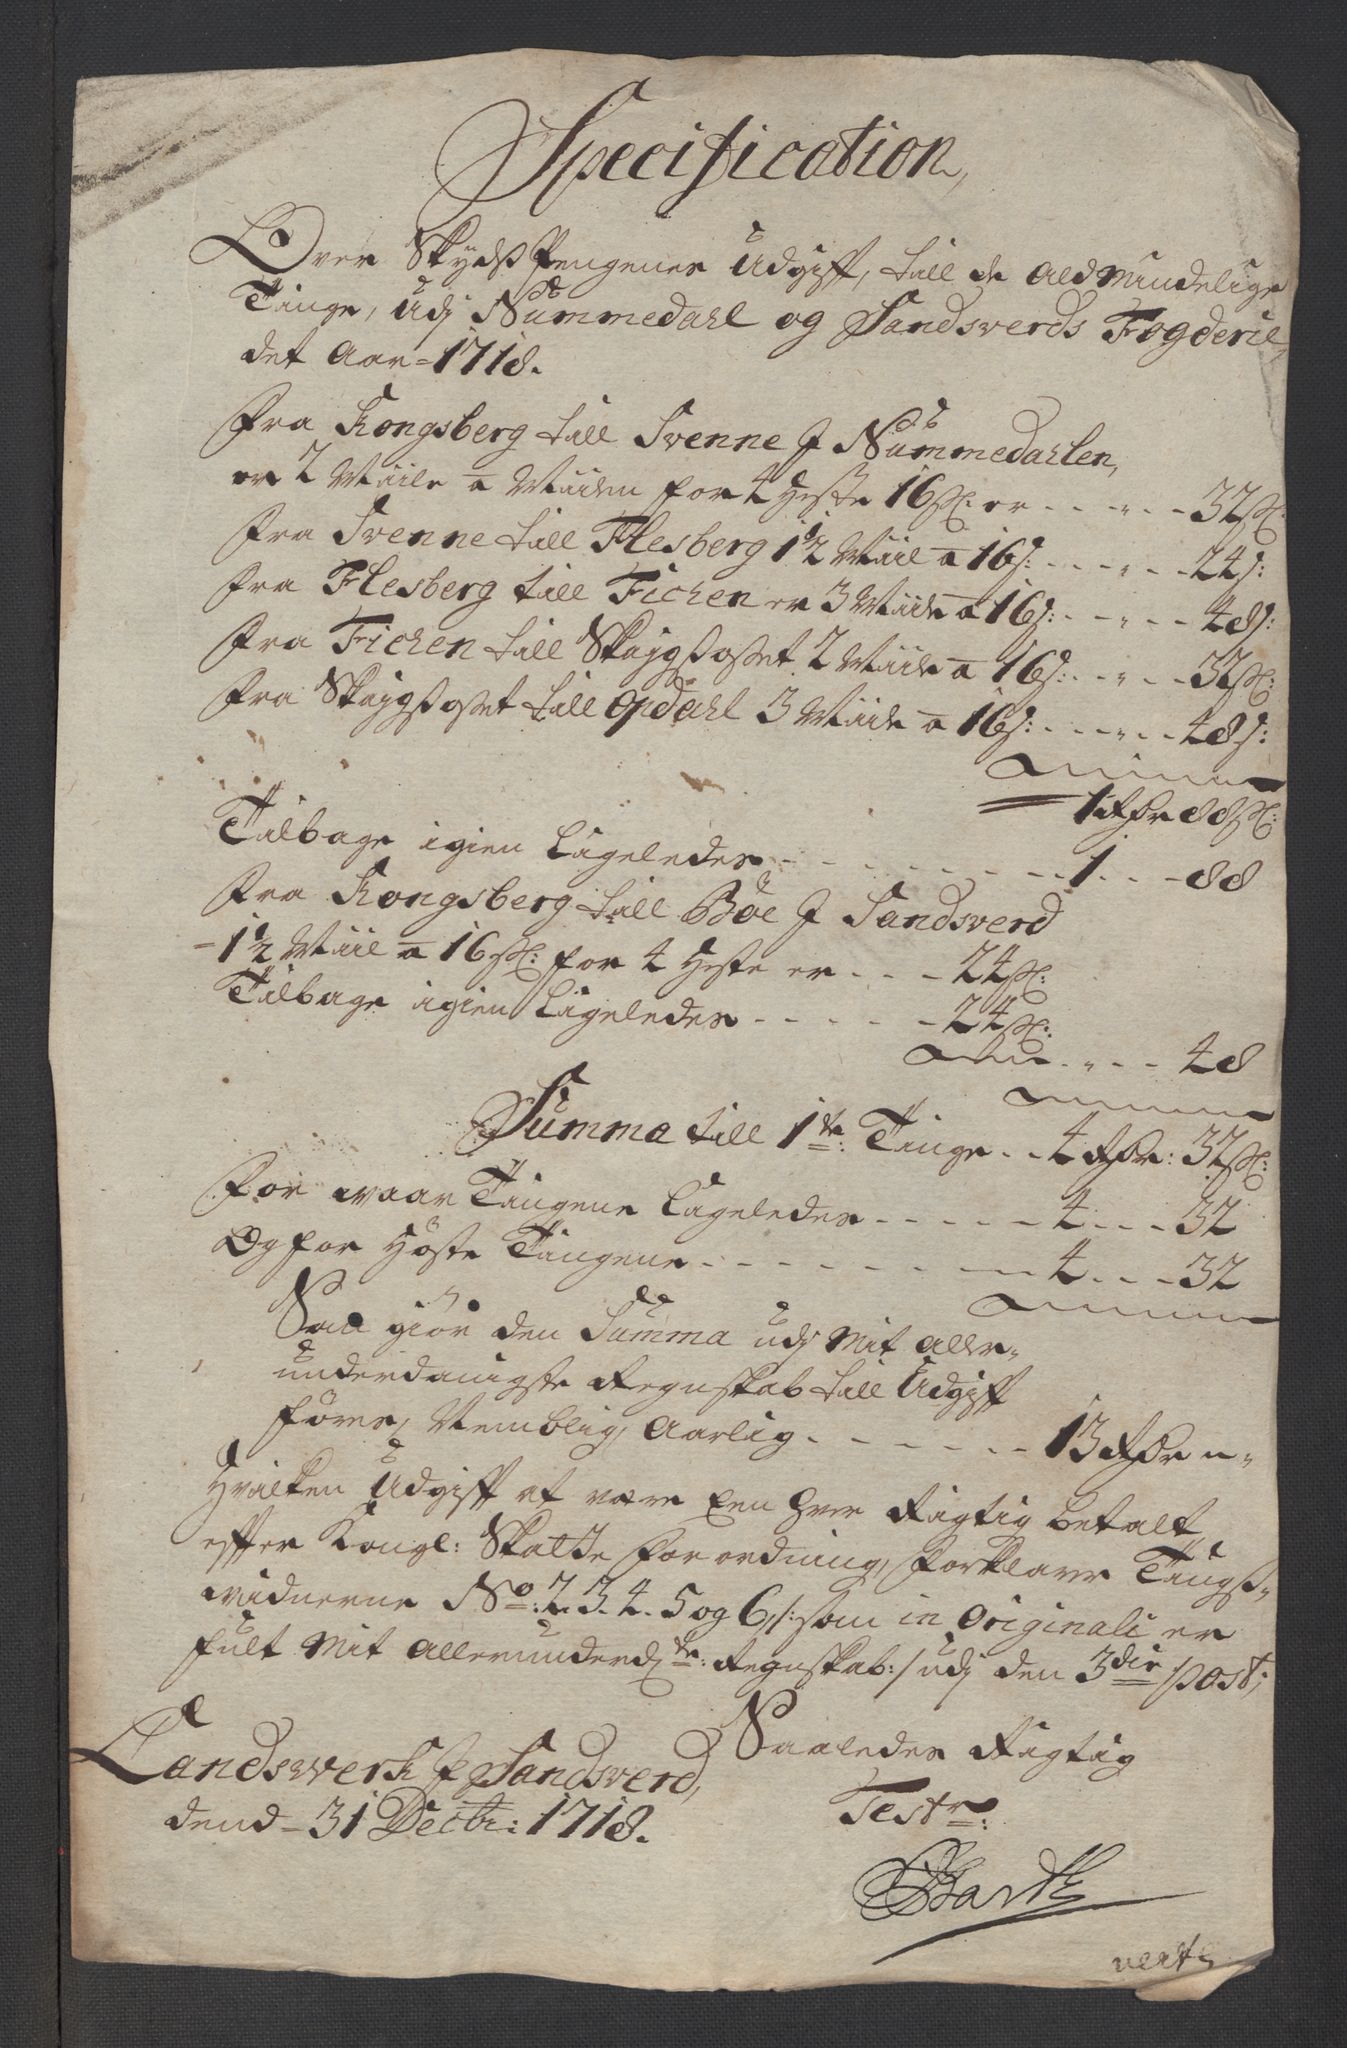 Specification,
Over SkydsPengenes Udgift, till de Aldmindelige
Tinge, Udj Nummedahl og Sandsverds Fogderie,
det Aar = 1718.
Fra Kongsberg till Svenne J Nummedahlen,
er 2 Miile a Miilen for 4 Heste 16 sk: er - - - " - - 32 sk:
Fra Svenne till Flesberg 1½ Miil a 16 s: - - - " - - 24 s:
Fra Flesberg till Fichen er 3 Miile a 16 s: - - - " - - - 48 s:
Fra Fichen till Skajgsloset 2 Miile a 16 s: - - " - - 32 sk:
Fra Skajgsloset till Opdahl 3 Miile a 16 s: - - - " - - 48 s:
1 Rdr 88 sk:
Tilbage igien Ligeledes - - - - - - - - - - 1 - - - 88
Fra Kongsberg till Böe J Sandsverd
- 1½ Miil a 16 sk: for 4 Heste er - - - 24 sk:
Tilbage igien Ligeledes - - - - - - 24 sk:
- " - - 48
Summa till 1te: Tinge - - 4 Rdr: 32 sk:
For waar Tingene Ligeledes - - - - - 4 - - - 32
Og for Höste Tingene - - - - - - - - 4 - - - 32
Saa giör den Summa udj Mit Aller-
underdanigste Regnskab till Udgift
föres, Nemblig, Aarlig - - - - - - - 13 Rdr "-
Hvilken Udgift at være Een hver Rigtig betalt
efter Kongl: Skatte Forordning, forklarer Tings-
widnerne No: 2. 3. 4. 5 og 6, /: som in Originali er
fult Mit Allerunderd: te: Regnskab: / udj den 3die post;
Landsverk J Sandsverd,
dend - 31 Decbr: 1718.
Saaledes Rigtig
Testr:
Barth
verte